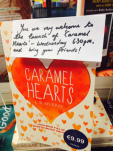 You are very welcome to
the launch of 'Caramel
Hearts' - Wednesday 630pm,
and bring your friends!
CARAMEL
HEARTS
€9.99